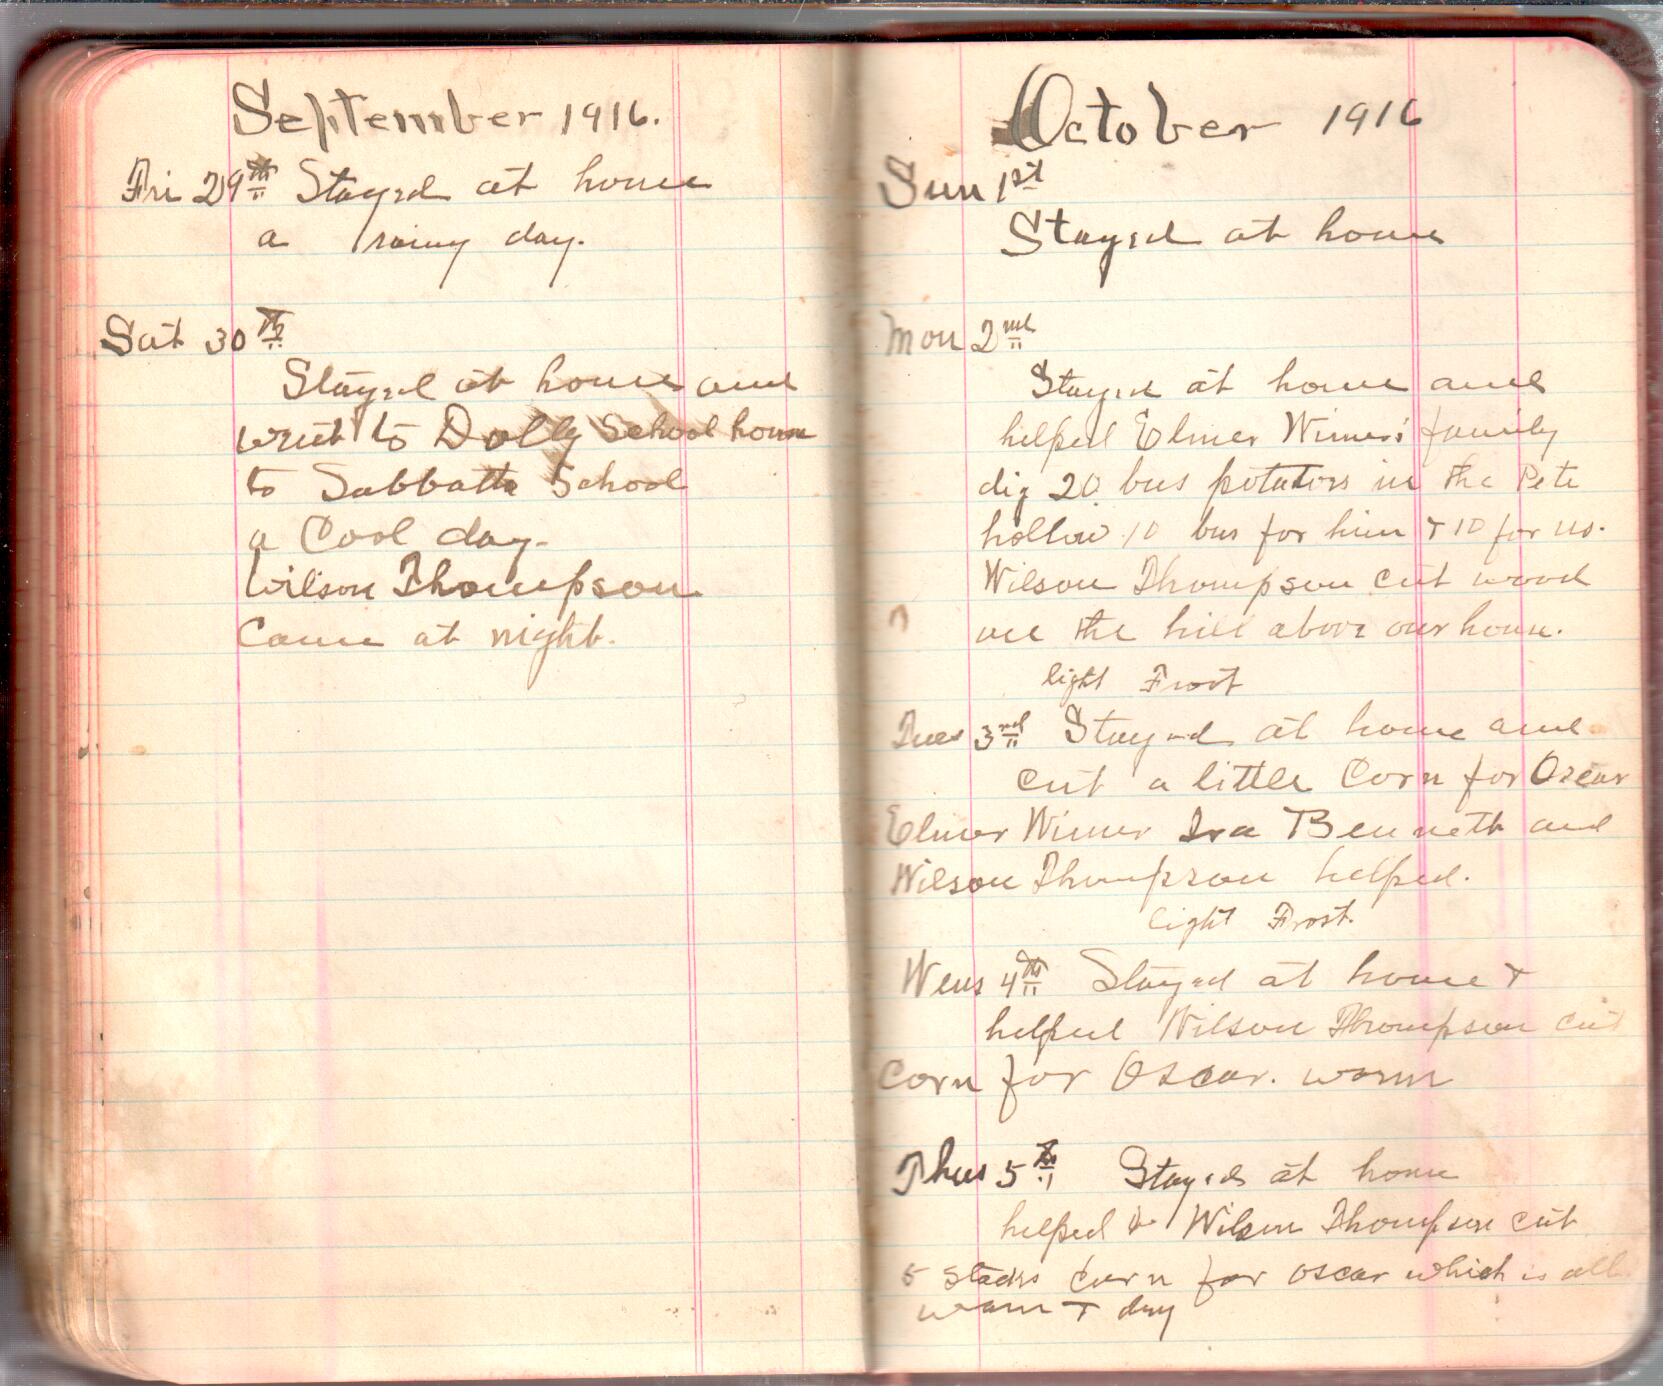 September 1916.
Fri 29th Stayed at home
a rainy day.
Sat 30th
Stayed at home and
went to Dolly School house
to Sabbath School
a Cool day.
Wilson Thompson
Came at night.
October 1916
Sun 1st
Stayed at home
Mon 2nd
Stayed at home and
helped Elmer Wimers family
dig 20 bus potatoes in the Pete
hollow 10 bus for him & 10 for us.
Wilson Thompson cut wood
on the hill above our house.
light Frost
Tues 3rd Stayed at home and
cut a little Corn for Oscar
Elmer Wimer Ira Bennett and
Wilson Thompson helped.
light Frost.
Wens 4th Stayed at home &
helped Wilson Thompson cut
Corn for Oscar. warm
Thus 5th Stayed at home
helped Wilson Thompson cut
5 stacks Corn for Oscar which is all
warm & dry